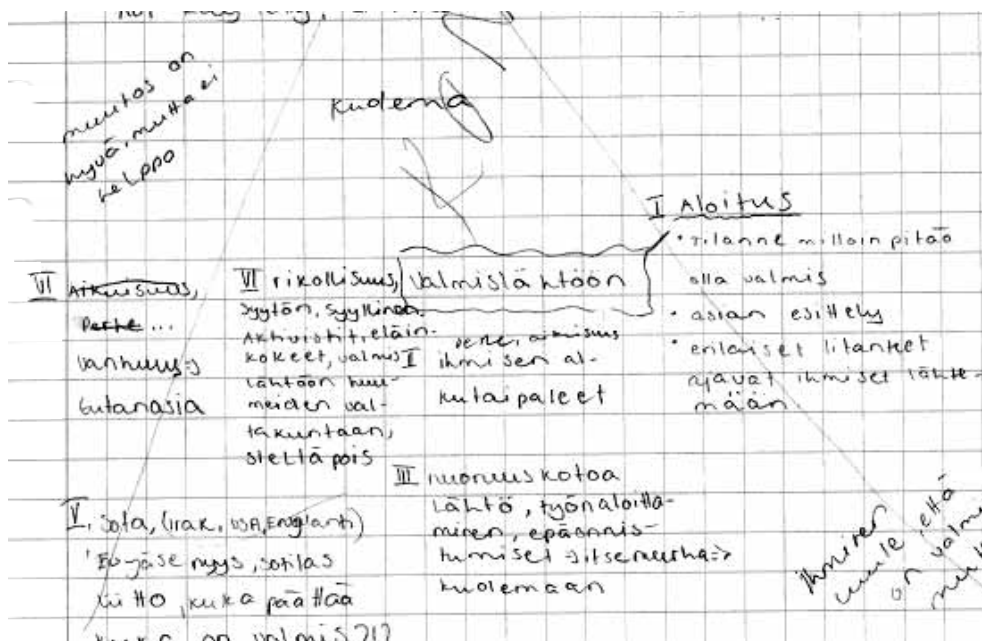 muutos on
hyvä, mutta ei
helppo
kuolema
I Aloitus
• tilanne milloin pitää
olla valmis
• asian esittely
• erilaiset
ajavat ihmiset lähte-
mään
valmis lähtöön
VI rikollisuus,
syytön, syyllinen
Aktivistit, eläin-
kokeet, valmis
lähtöön huu-
meiden val-
takuntaan,
sieltä pois
VI Aikuisuus,
Perhe ...
vanhuus =>
Eutanasia
I
ihmisen al-
kutaipaleet
III nuoruus kotoa
lähtö, työnaloitta-
minen, epäonnis-
tumiset → itsemurha =>
kuolemaan
V. Sota, (irak, USA, Englanti)
EU-jäsenyys, sotilas
liitto, kuka päättää
on valmis?!?
ihminen
luule että
on valmis